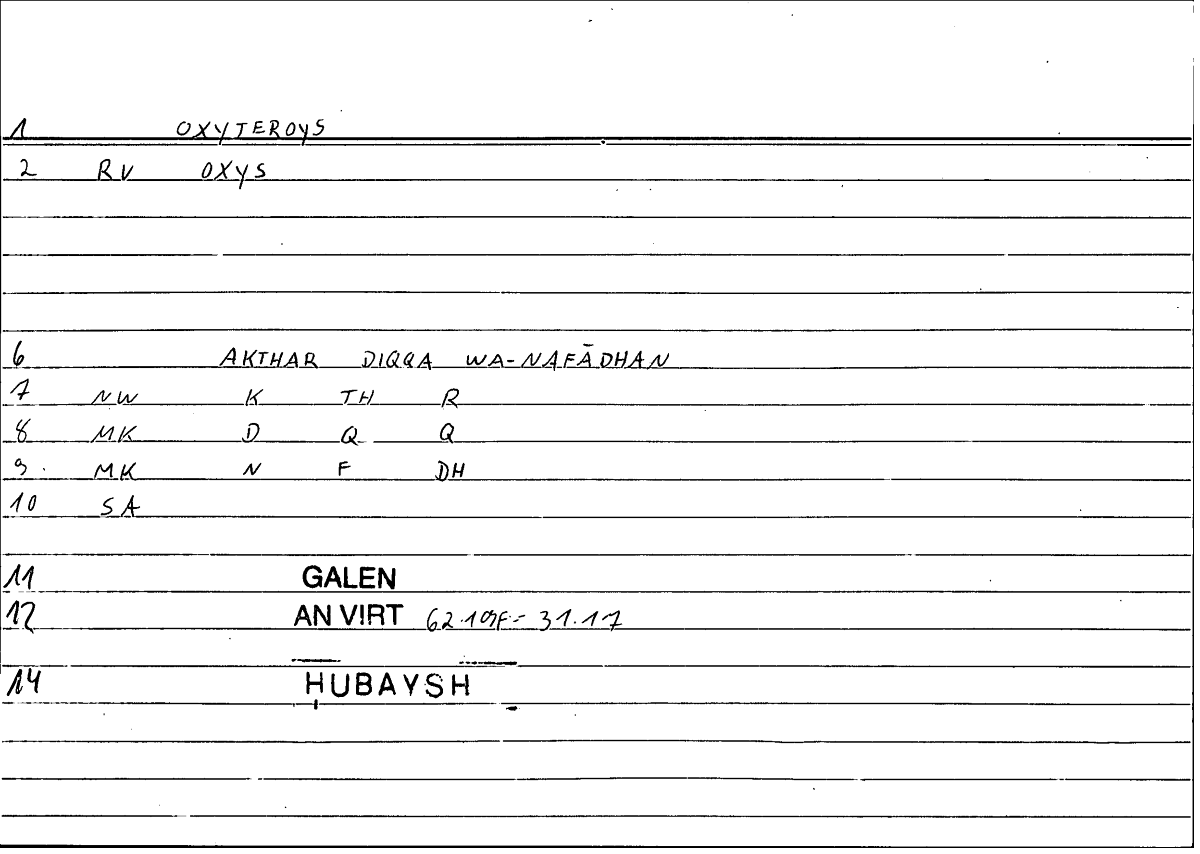 1 OXYTEROYS
2 RV OXYS
6 AKTHAR DIQQA WA-NAFĀDHAN
7 NW K TH R
8 MK D Q Q
9 MK N F DH
10 SA
11 GALEN
12 AN VIRT 62.19F = 31.17
14 HUBAYSH